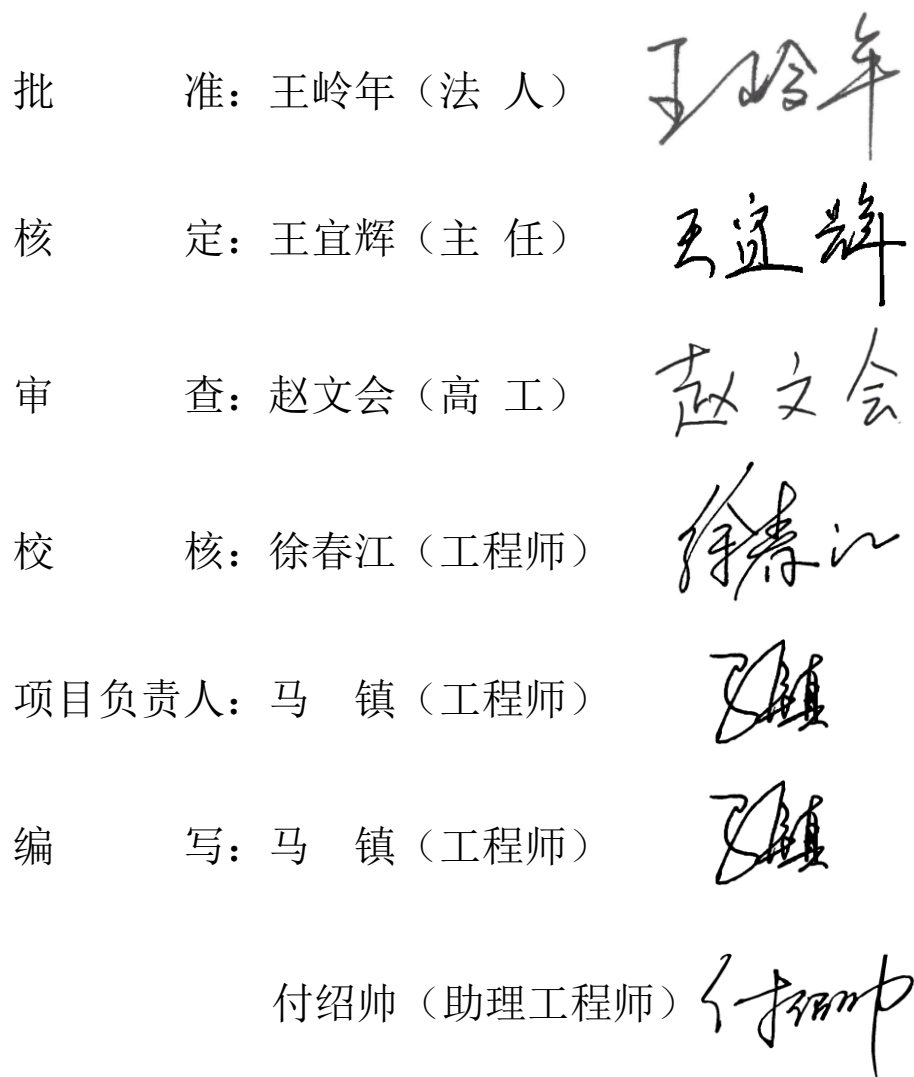 批 准：王岭年（法 人） 王岭年
核 定：王宜辉（主 任） 王宜辉
审 查：赵文会（高 工） 赵文会
校 核：徐春江（工程师） 徐春江
项目负责人：马 镇（工程师） 马镇
编 写：马 镇（工程师） 马镇
付绍帅（助理工程师） 付绍帅